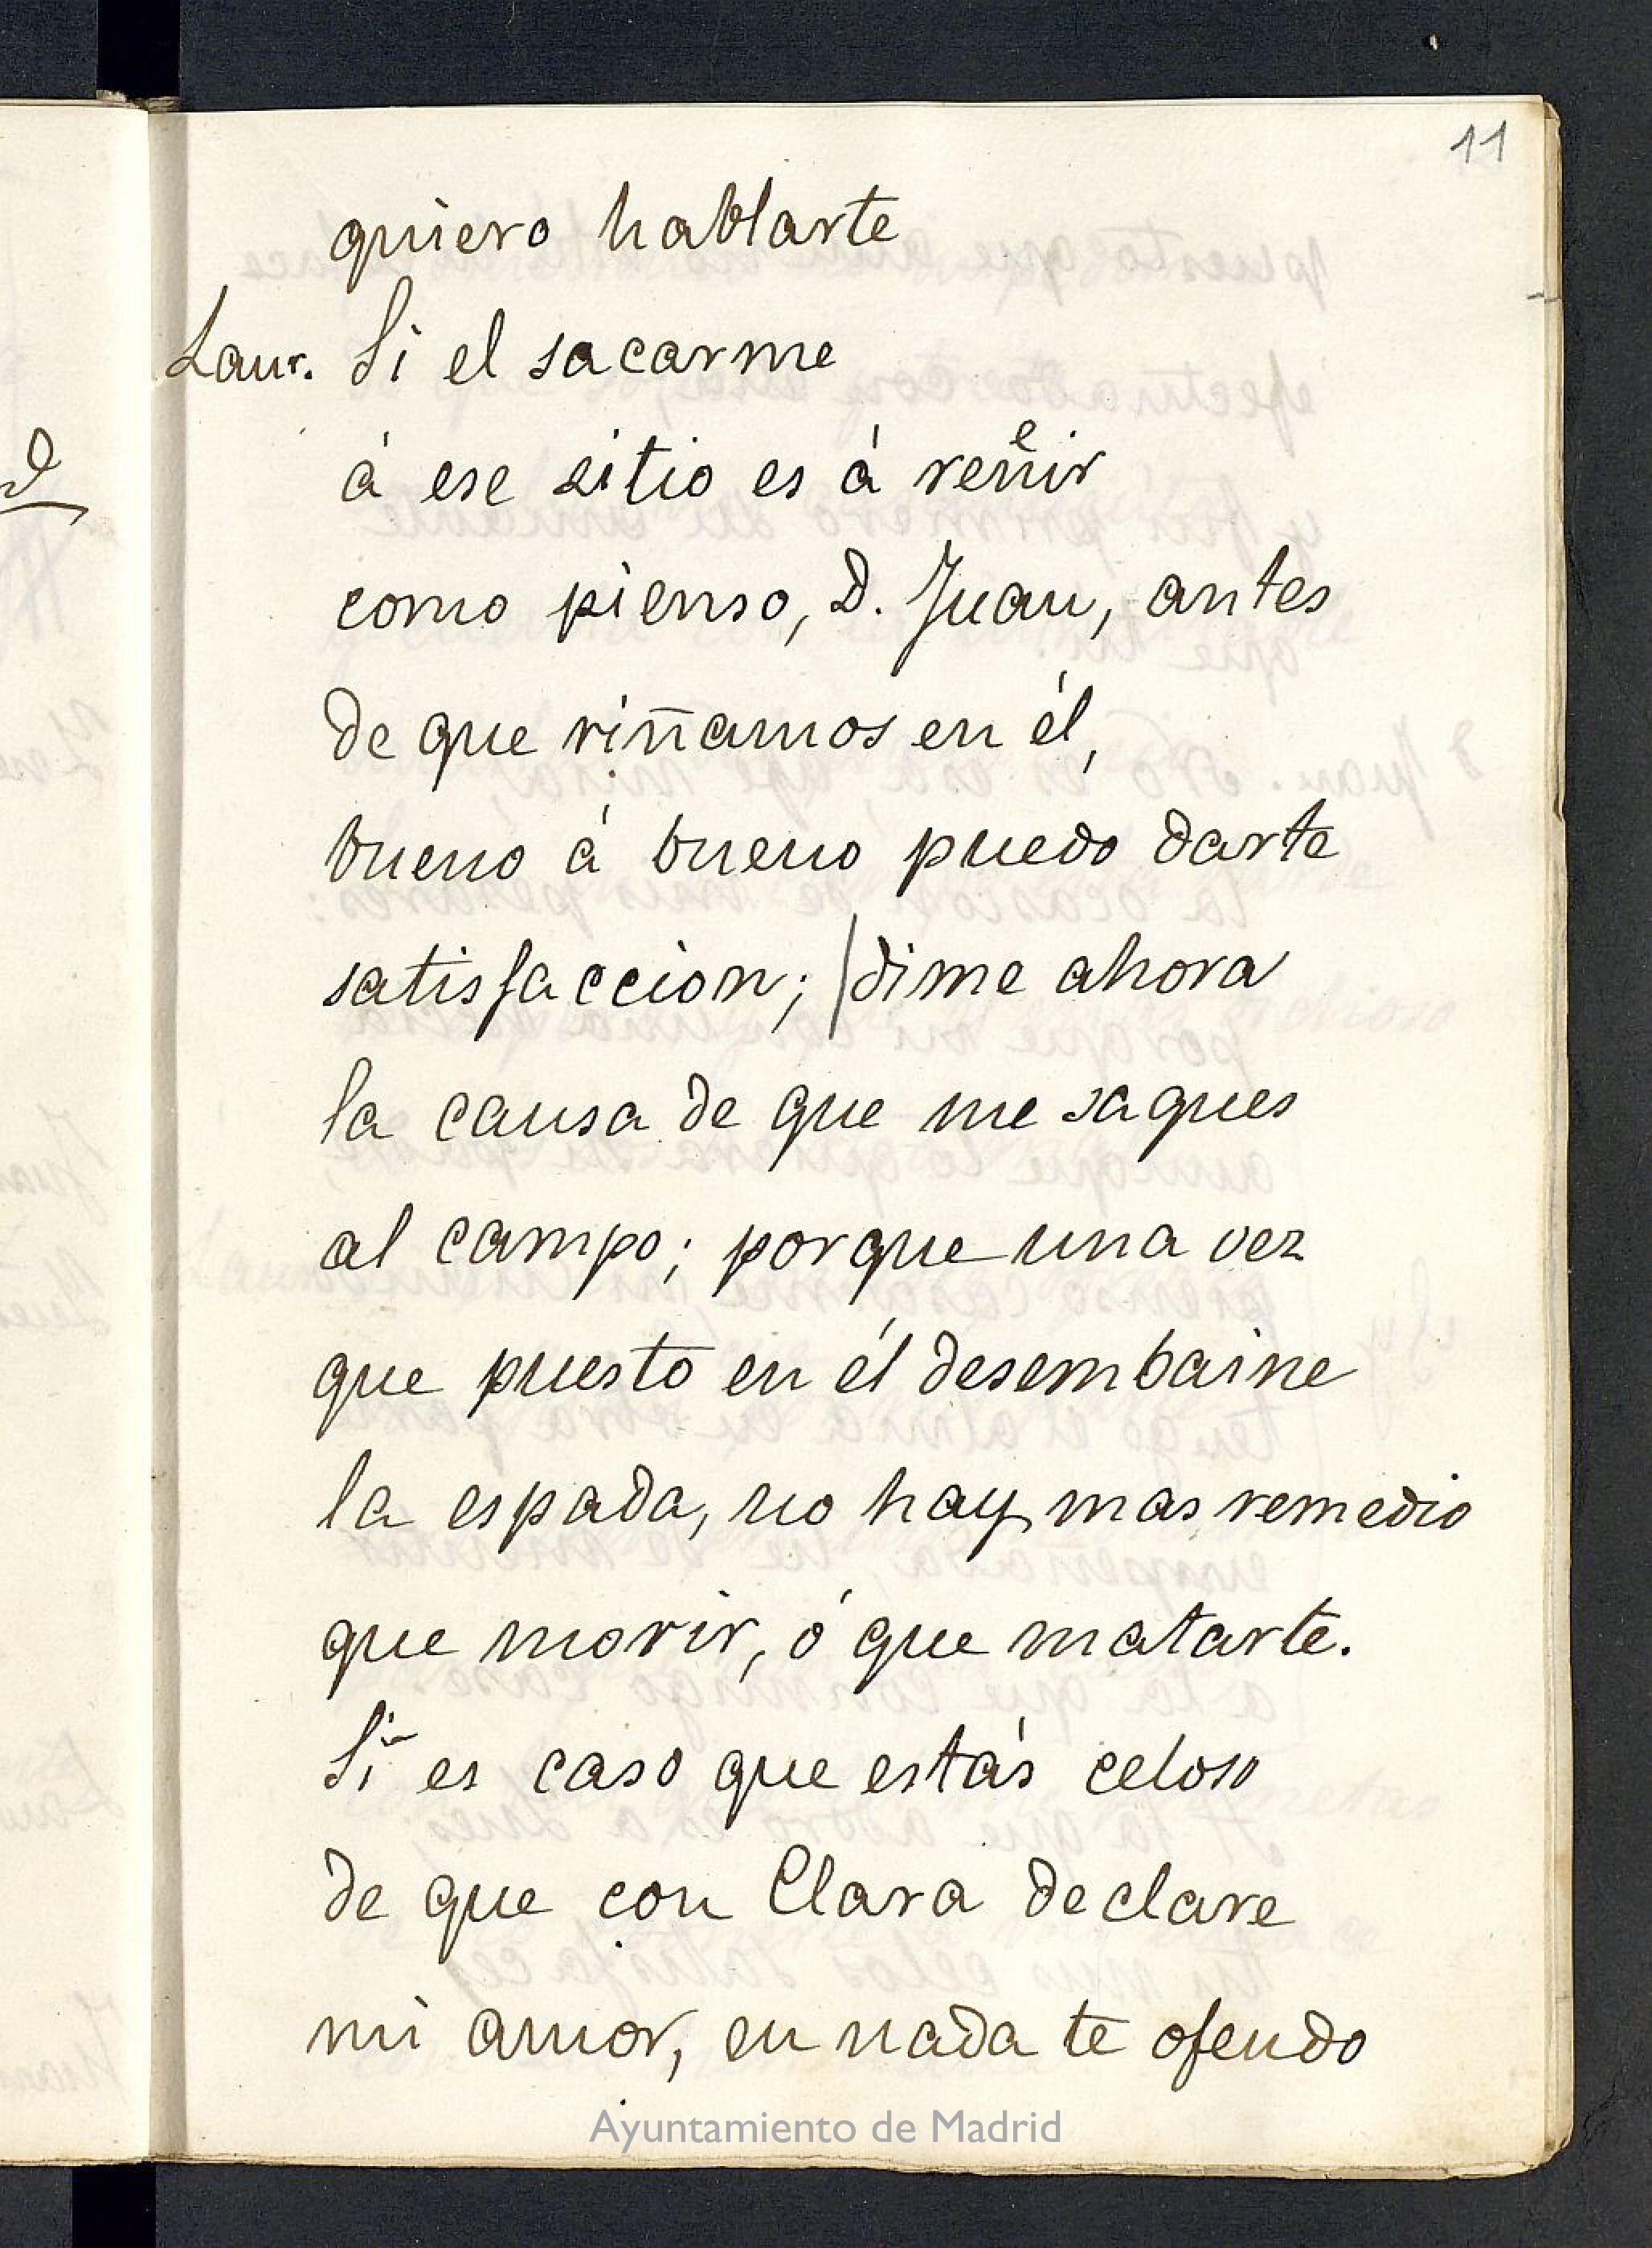 11
quiero hablarte
Laur. Si el sacarme
á ese sitio es á reñir
como pienso, D. Juan, antes
de que riñamos en él,
bueno á bueno puedo darte
satisfaccion; /dime ahora
la causa de que me saques
al campo; porque una vez
que puesto en él desembaine
la espada, no hay mas remedio
que morir, ó que matarte.
Si es caso que estás celoso
de que con Clara declare
mi amor, en nada te ofendo
Ayuntamiento de Madrid